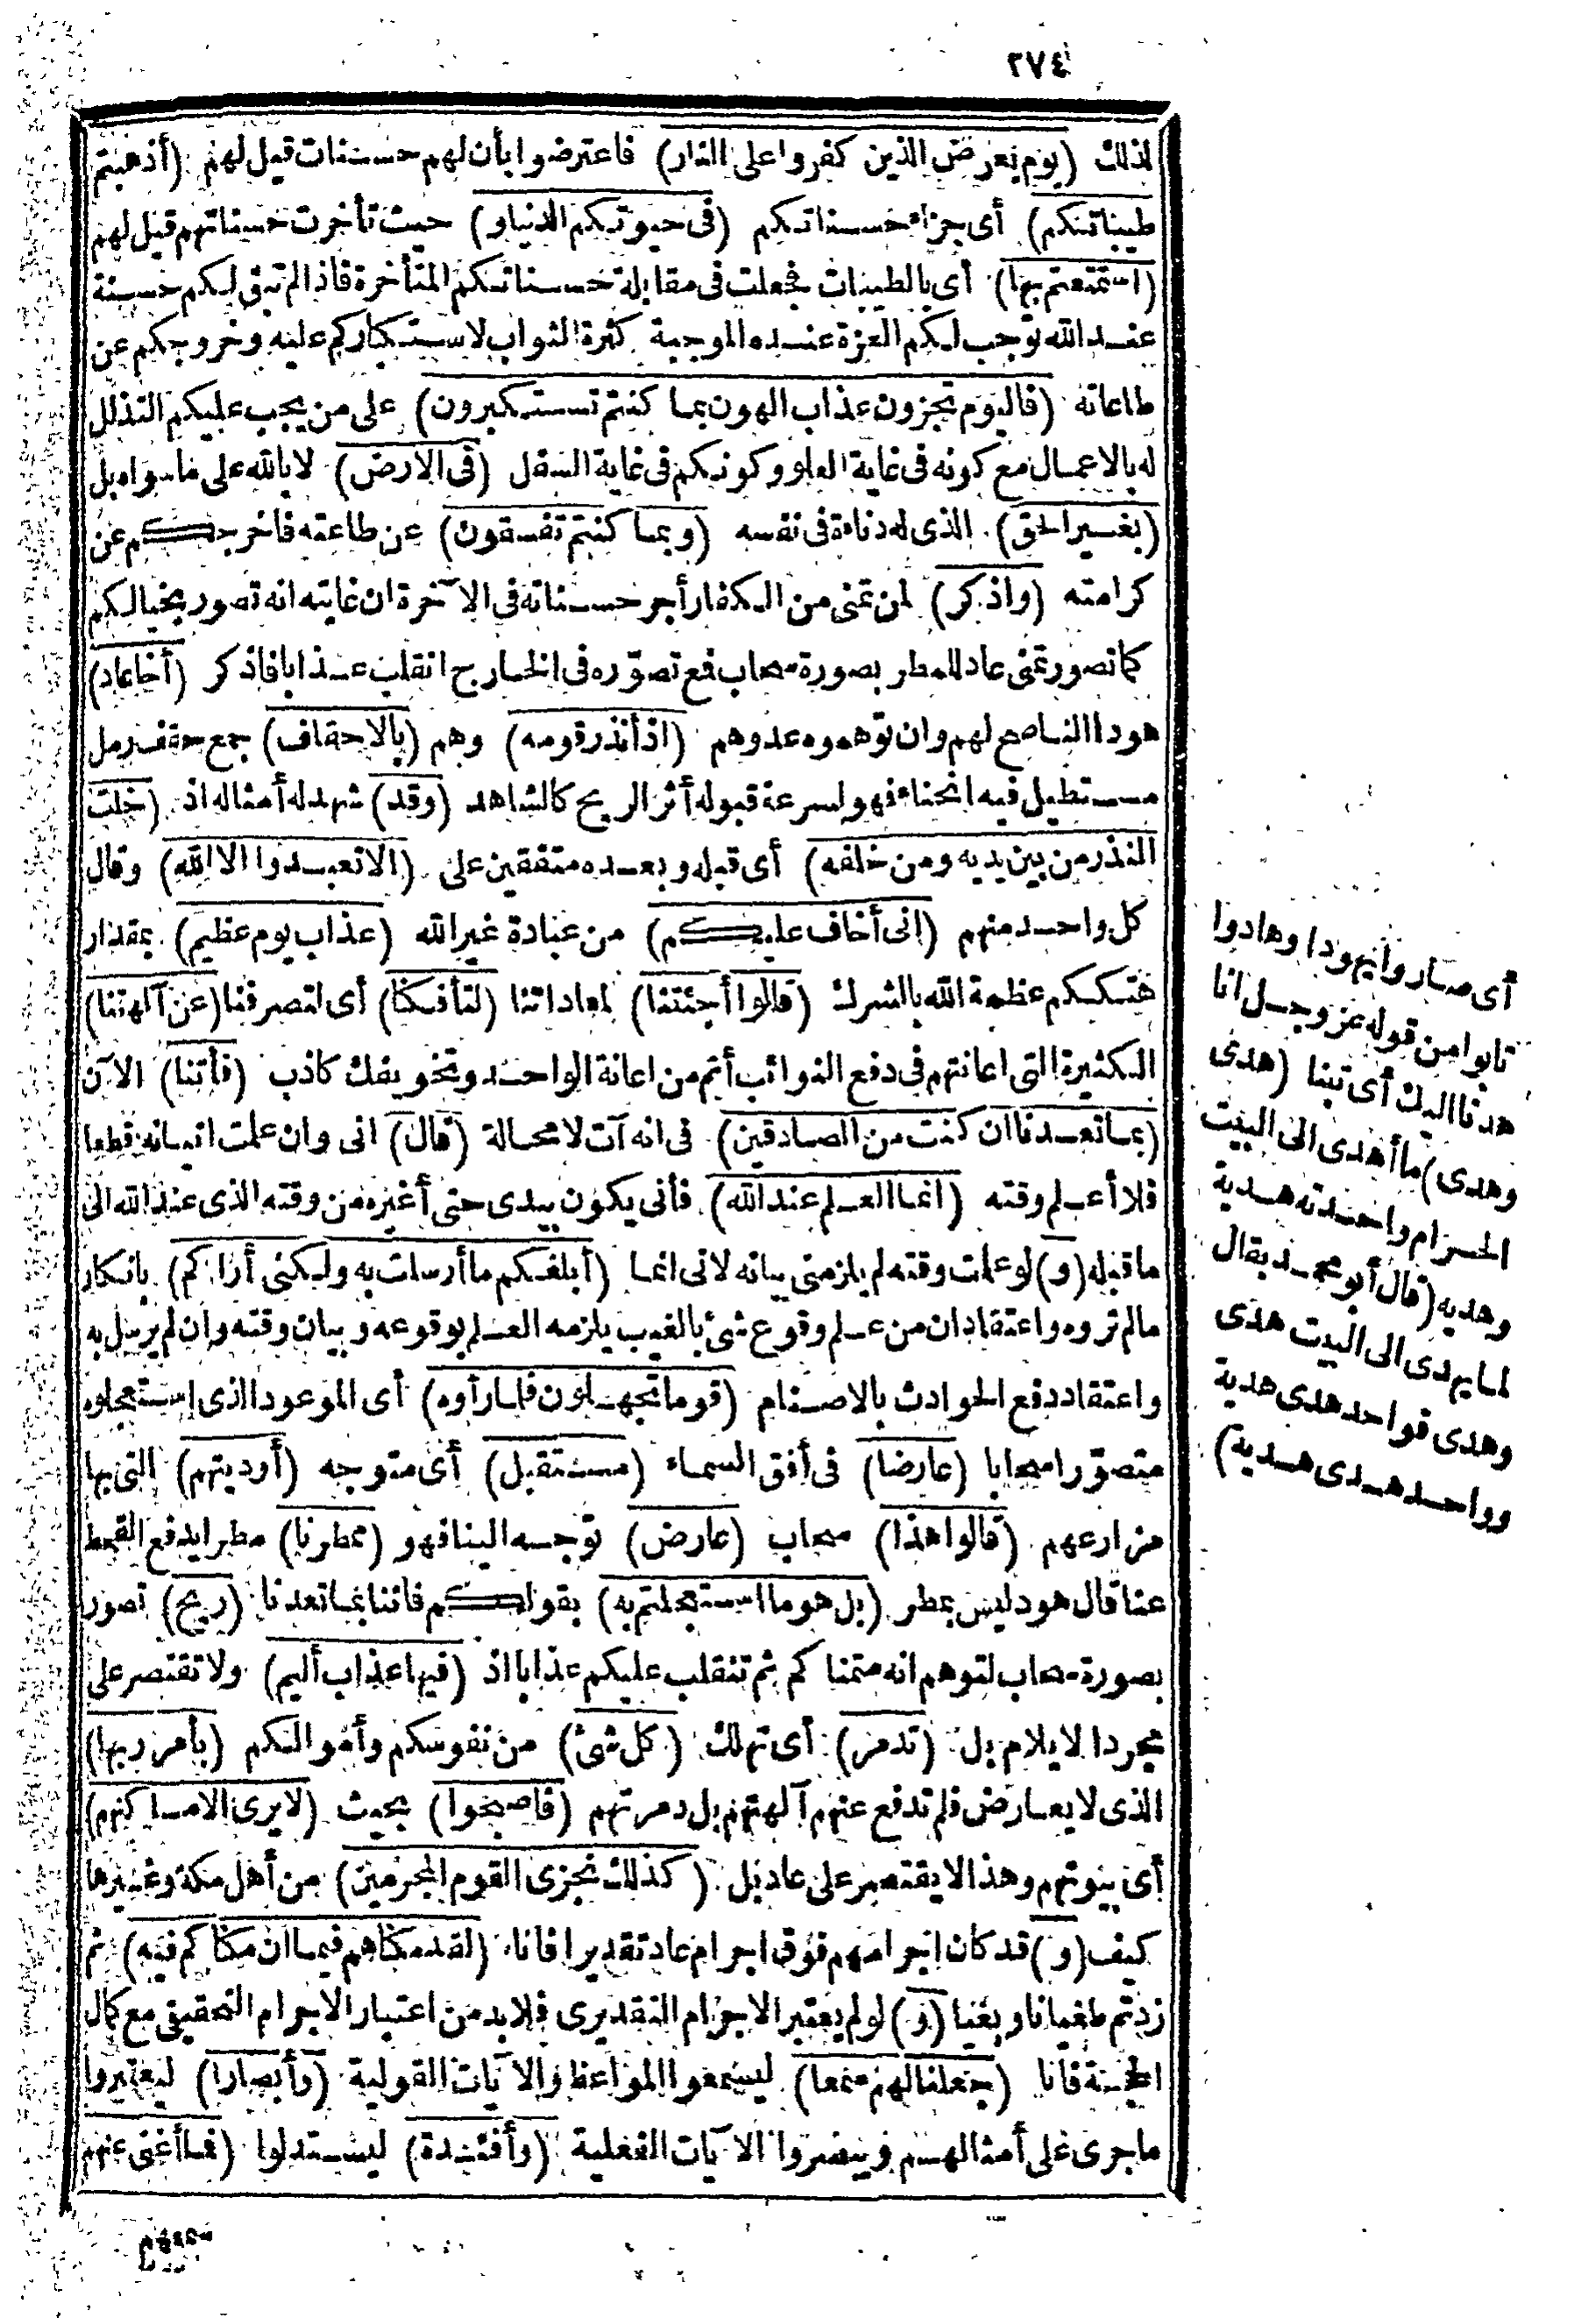 ٢٧٤
لذلك (يوم يعرض الذين كفروا على النار) فاعترضوا بأن لهم حسنات قيل لهم (أذهبتم
طيباتكم) أى جزاء حسناتكم (فى حيوتكم الدنيا و) حيث تأخرت حسناتهم قيل لهم
(استمتعتم بها) أى بالطيبات فجعلت فى مقابلة حسناتكم المتأخرة فاذا لم تبق لكم حسنة
عند الله توجب لكم العزة عنده الموجبة كثرة الثواب لاستكباركم عليه وخروجكم عن
طاعاته (فاليوم تجزون عذاب الهون بما كنتم تستكبرون) على من يجب عليكم التذلل
له بالاعمال مع كونه فى غاية العلو وكونكم فى غاية السفل (فى الارض) لا بالله على ما سواه بل
(بغير الحق) الذى له دناءة فى نفسه (وبما كنتم تفسقون) عن طاعته فاخرجكم عن
كرامته (واذكر) لمن تمنى من الكفار أجر حسناته فى الآخرة ان غايته انه تصور بخيالكم
كما تصور تمنى عاد للمطر بصورة سحاب فمع تصوّره فى الخارج انقلب عذابا فاذكر (أخا عاد)
هودا الناصح لهم وان توهموه عدوهم (اذ أنذر قومه) وهم (بالاحقاف) جمع حقف رمل
مستطيل فيه انحناء فهو لسرعة قبوله أثر الريح كالشاهد (وقد) شهد له أمثاله اذ (خلت
النذر من بين يديه ومن خلفه) أى قبله وبعده متفقين على (الا تعبدوا الا الله) وقال
كل واحد منهم (انى أخاف عليكم) من عبادة غير الله (عذاب يوم عظيم) بمقدار
هتككم عظمة الله بالشرك (قالوا أجئتنا) لمعاداتنا (لتأفكنا) أى لتصرفنا (عن آلهتنا)
الكثيرة التى اعانتهم فى دفع النوائب أتم من اعانة الواحد وتخويفك كاذب (فأتنا) الآن
(بما تعدنا ان كنت من الصادقين) فى انه آت لا محالة (قال) انى وان علمت اتيانه قطعا
فلا أعلم وقته (انما العلم عند الله) فأنى يكون بيدى حتى أغيره من وقته الذى عند الله الى
ما قبله (و) لو علمت وقته لم يلزمنى بيانه لانى انما (أبلغكم ما أرسلت به ولكنى أراكم) بانكار
مالم تروه واعتقاد ان من علم وقوع شئ بالغيب يلزمه العلم بوقوعه وبيان وقته وان لم يرسل به
واعتقاد دفع الحوادث بالاصنام (قوما تجهلون فلما رأوه) أى الموعود الذى استعجلوه
متصوّرا سحابا (عارضا) فى أفق السماء (مستقبل) أى متوجه (أوديتهم) التى بها
مزارعهم (قالوا هذا) سحاب (عارض) توجه الينا فهو (ممطرنا) مطرا يدفع القحط
عنا قال هود ليس بمطر (بل هو ما استعجلتم به) بقولكم فائتنا بما تعدنا (ريح) تصور
بصورة سحاب لتوهم انه متمناكم ثم تنقلب عليكم عذابا اذ (فيها عذاب أليم) ولا تقتصر على
مجرد الايلام بل (تدمر) أى تهلك (كل شئ) من نفوسكم وأموالكم (بأمر ربها)
الذى لا يعارض فلم تدفع عنهم آلهتهم بل دمرتهم (فاصبحوا) بحيث (لا يرى الا مساكنهم)
أى بيوتهم وهذا لا يقتصر على عاد بل (كذلك نجزى القوم المجرمين) من أهل مكة وغيرها
كيف (و) قد كان اجرامهم فوق اجرام عاد تقديرا فانا (لقد مكناهم فيما ان مكناكم فيه) ثم
زدتم طغيانا وبغيا (و) لو لم يعتبر الاجرام التقديرى فلابد من اعتبار الاجرام التحقيقى مع كمال
الحجة فانا (جعلنا لهم سمعا) ليسمعوا المواعظ والآيات القولية (وأبصارا) ليعتبروا
ما جرى على أمثالهم ويبصروا الآيات الفعلية (وأفئدة) ليستدلوا (فما أغنى عنهم
سمعهم
أى صاروا يهودا وهادوا
تابوا من قوله عز وجل انا
هدنا اليك أى تبنا (هدى
وهدى) ما أهدى الى البيت
الحرام واحدته هدية
وهديه (قال أبو محمد يقال
لما يهدى الى البيت هدى
وهدى فواحد هدى هدية
وواحد هدى هديه)